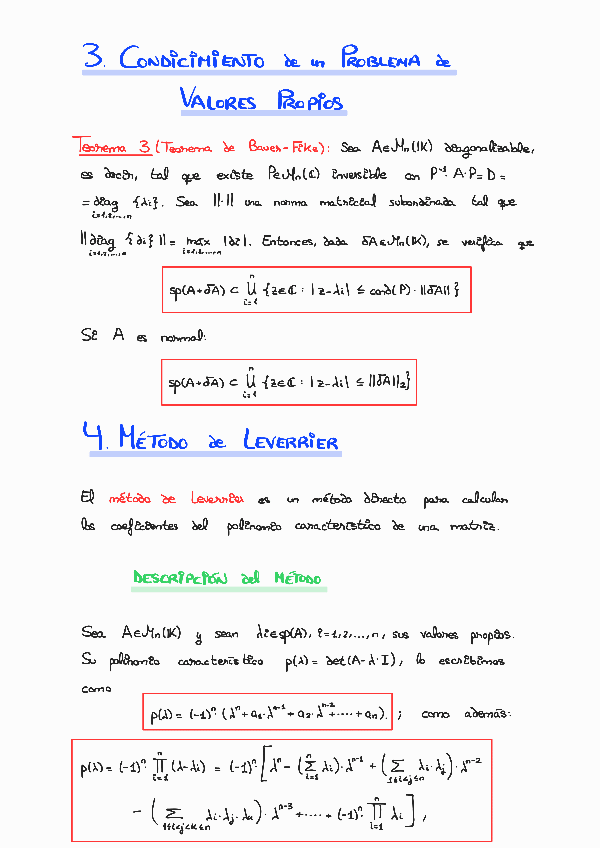 3. CONDICIMIENTO de un PROBLEMA de
VALORES PROPIOS
Teorema 3 (Teorema de Bauer-Fike): Sea A∈Mn(IK) diagonalizable,
es decir, tal que existe P∈Mn(C) inversible con P⁻¹·A·P=D=
= diag {λi}. Sea ||·|| una norma matricial subordinada tal que
i=1,2,...,n
||diag {di}|| = máx |di|. Entonces, dada δA∈Mn(IK), se verifica que
i=1,2,...,n i=1,2,...,n
sp(A+δA) ⊂ ⋃ⁿᵢ₌₁ {z∈ℂ : |z-λi| ≤ cond(P)·||δA||}
Si A es normal:
sp(A+δA) ⊂ ⋃ⁿᵢ₌₁ {z∈ℂ : |z-λi| ≤ ||δA||₂}
4. MÉTODO de LEVERRIER
El método de Leverrier es un método directo para calcular
los coeficientes del polinomio característico de una matriz.
DESCRIPCIÓN del MÉTODO
Sea A∈Mn(IK) y sean λi∈sp(A), i=1,2,...,n, sus valores propios.
Su polinomio característico p(λ)= det(A-λ·I), lo escribimos
como
p(λ) = (-1)ⁿ·(λⁿ+a₁·λⁿ⁻¹+a₂·λⁿ⁻²+····+an). ; como además:
p(λ) = (-1)ⁿ·∏ⁿᵢ₌₁ (λ-λi) = (-1)ⁿ·[λⁿ - (∑ⁿᵢ₌₁ λi)·λⁿ⁻¹ + (∑ 1≤i<j≤n λi·λj)·λⁿ⁻²
- (∑ 1≤i<j<k≤n λi·λj·λk)·λⁿ⁻³ +·····+ (-1)ⁿ·∏ⁿᵢ₌₁ λi],